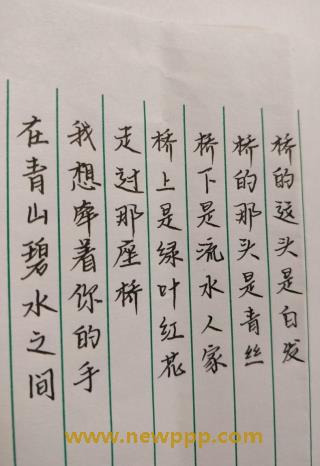 在青山碧水之间
我想牵着你的手
走过那座桥
桥上是绿叶红花
桥下是流水人家
桥的那头是青丝
桥的这头是白发
www.newppp.com